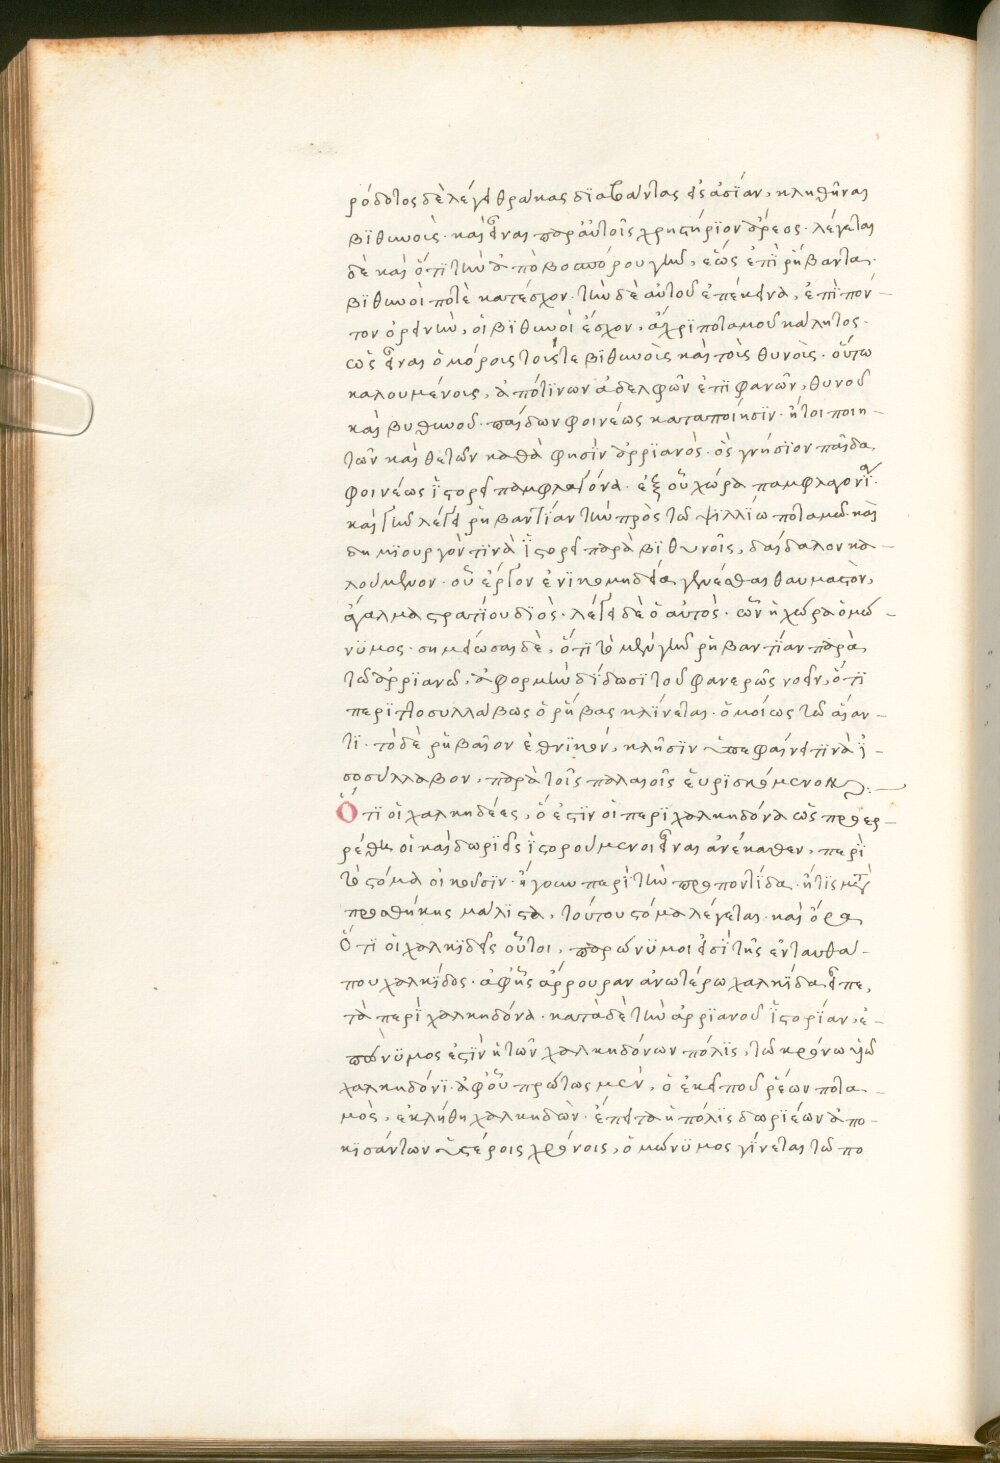 ρόδοτος δὲ λέγει θρᾶκας διαβάντας εἰς ἀσίαν, κληθῆναι
βϊθυνοὺς. καὶ εἶναι παρ αὐτοῖς χρηστήριον ἄρεος. λέγεται
δὲ καὶ ὅτι τὴν ἀπὸ βοσπόρου γῆν, ἕως ἐπὶ ῥήβαντα.
βϊθυνοὶ ποτὲ κατέσχον. τὴν δὲ αὐτοῦ ἐπέκεινα, ἐπὶ πόν-
τον ὀρεινὴν, οἱ βϊθυνοὶ ἔσχον, ἄχρι ποταμοῦ κάλητος.
ὡς εἶναι ὁμόρους τούς τε βϊθυνοὺς καὶ τοὺς θυνοὺς. οὕτω
καλουμένους, ἀπό τϊνων ἀδελφῶν ἐπιφανῶν, θυνοῦ
καὶ βυθυνοῦ. παίδων φοινέως κατα ποίησϊν. ἤτοι ποιη-
τῶν καὶ θετῶν καθὰ φησὶν ἀρριανὸς. ὃς γνήσϊον παῖδα
φοινέως ἱστορεῖ παμφλαγόνα. ἐξ οὗ χώρα παμφλαγονία.
καὶ γῆν λέγει ῥηβαντίαν τὴν πρὸς τῶ ψϊλλίω ποταμῶ. καὶ
δημϊουργόν τϊνὰ ἱστορεῖ παρὰ βϊθυνοῖς, δαίδαλον κα-
λούμενον. οὗ ἔργον ἐν νϊκομηδεία γενέσθαι θαυμαστὸν,
ἄγαλμα στρατίου δϊὸς. λέγει δὲ ὁ αὐτὸς. ὧν ἡ χώρα ὁμώ-
νϋμος. σημείωσαι δὲ, ὅτι τὸ μὲν γῆν ῥηβαντίαν παρὰ
τῶ ἀρριανῶ, ἀφορμὴν δίδωσι τοῦ φανερῶς νοεῖν, ὅτι
περιττοσυλλάβως ὁ ῥήβας κλίνεται. ὁμοίως τῶ αἴαν-
τι. τὸ δὲ ῥηβαῖον ἐθνϊκὸν, κλῆσϊν ὑπεφαίνετό τϊνὰ ἰ-
σοσύλλαβον, παρὰ τοῖς παλαιοῖς εὑρϊσκόμενον:
Ὅτι οἱ χαλκηδέες, ὅ ἐστϊν οἱ περὶ χαλκηδόνα ὡς προερ-
ρέθη οἱ καὶ δωριεῖς ἱστορούμενοι εἶναι ἀνέκαθεν, περὶ
τὸ στόμα οἰκοῦσϊν. ἤγουν περὶ τὴν προποντίδα. ἥτις μετὰ
προσθήκης μάλϊστα, τοῦ πόντου στόμα λέγεται. καὶ ὅρα
Ὅτι οἱ χαλκϊδεῖς οὗτοι, παρώνϋμοι εἰσὶ τῆς ἐνταῦθά-
που χαλκίδος. ἀφ ἧς ἄρρουραν ἀνωτέρω χαλκίδα εἶπε,
τὰ περὶ χαλκηδόνα. κατὰ δὲ τὴν ἀρριανοῦ ἱστορίαν, ἐ-
πώνϋμος ἐστϊν ἡ τῶν χαλκηδόνων πόλϊς, τῶ κρόνω υἱῶ
χαλκηδόνϊ. ἀφ οὗ πρώτως μὲν, ὁ ἐκεῖ που ῥέων ποτα-
μὸς, ἐκλήθη χαλκηδὼν. ἔπειτα ἡ πόλϊς δωριέων ἀπο-
κϊσάντων ὑστέροις χρόνοις, ὁμώνϋμος γίνεται τῶ πο